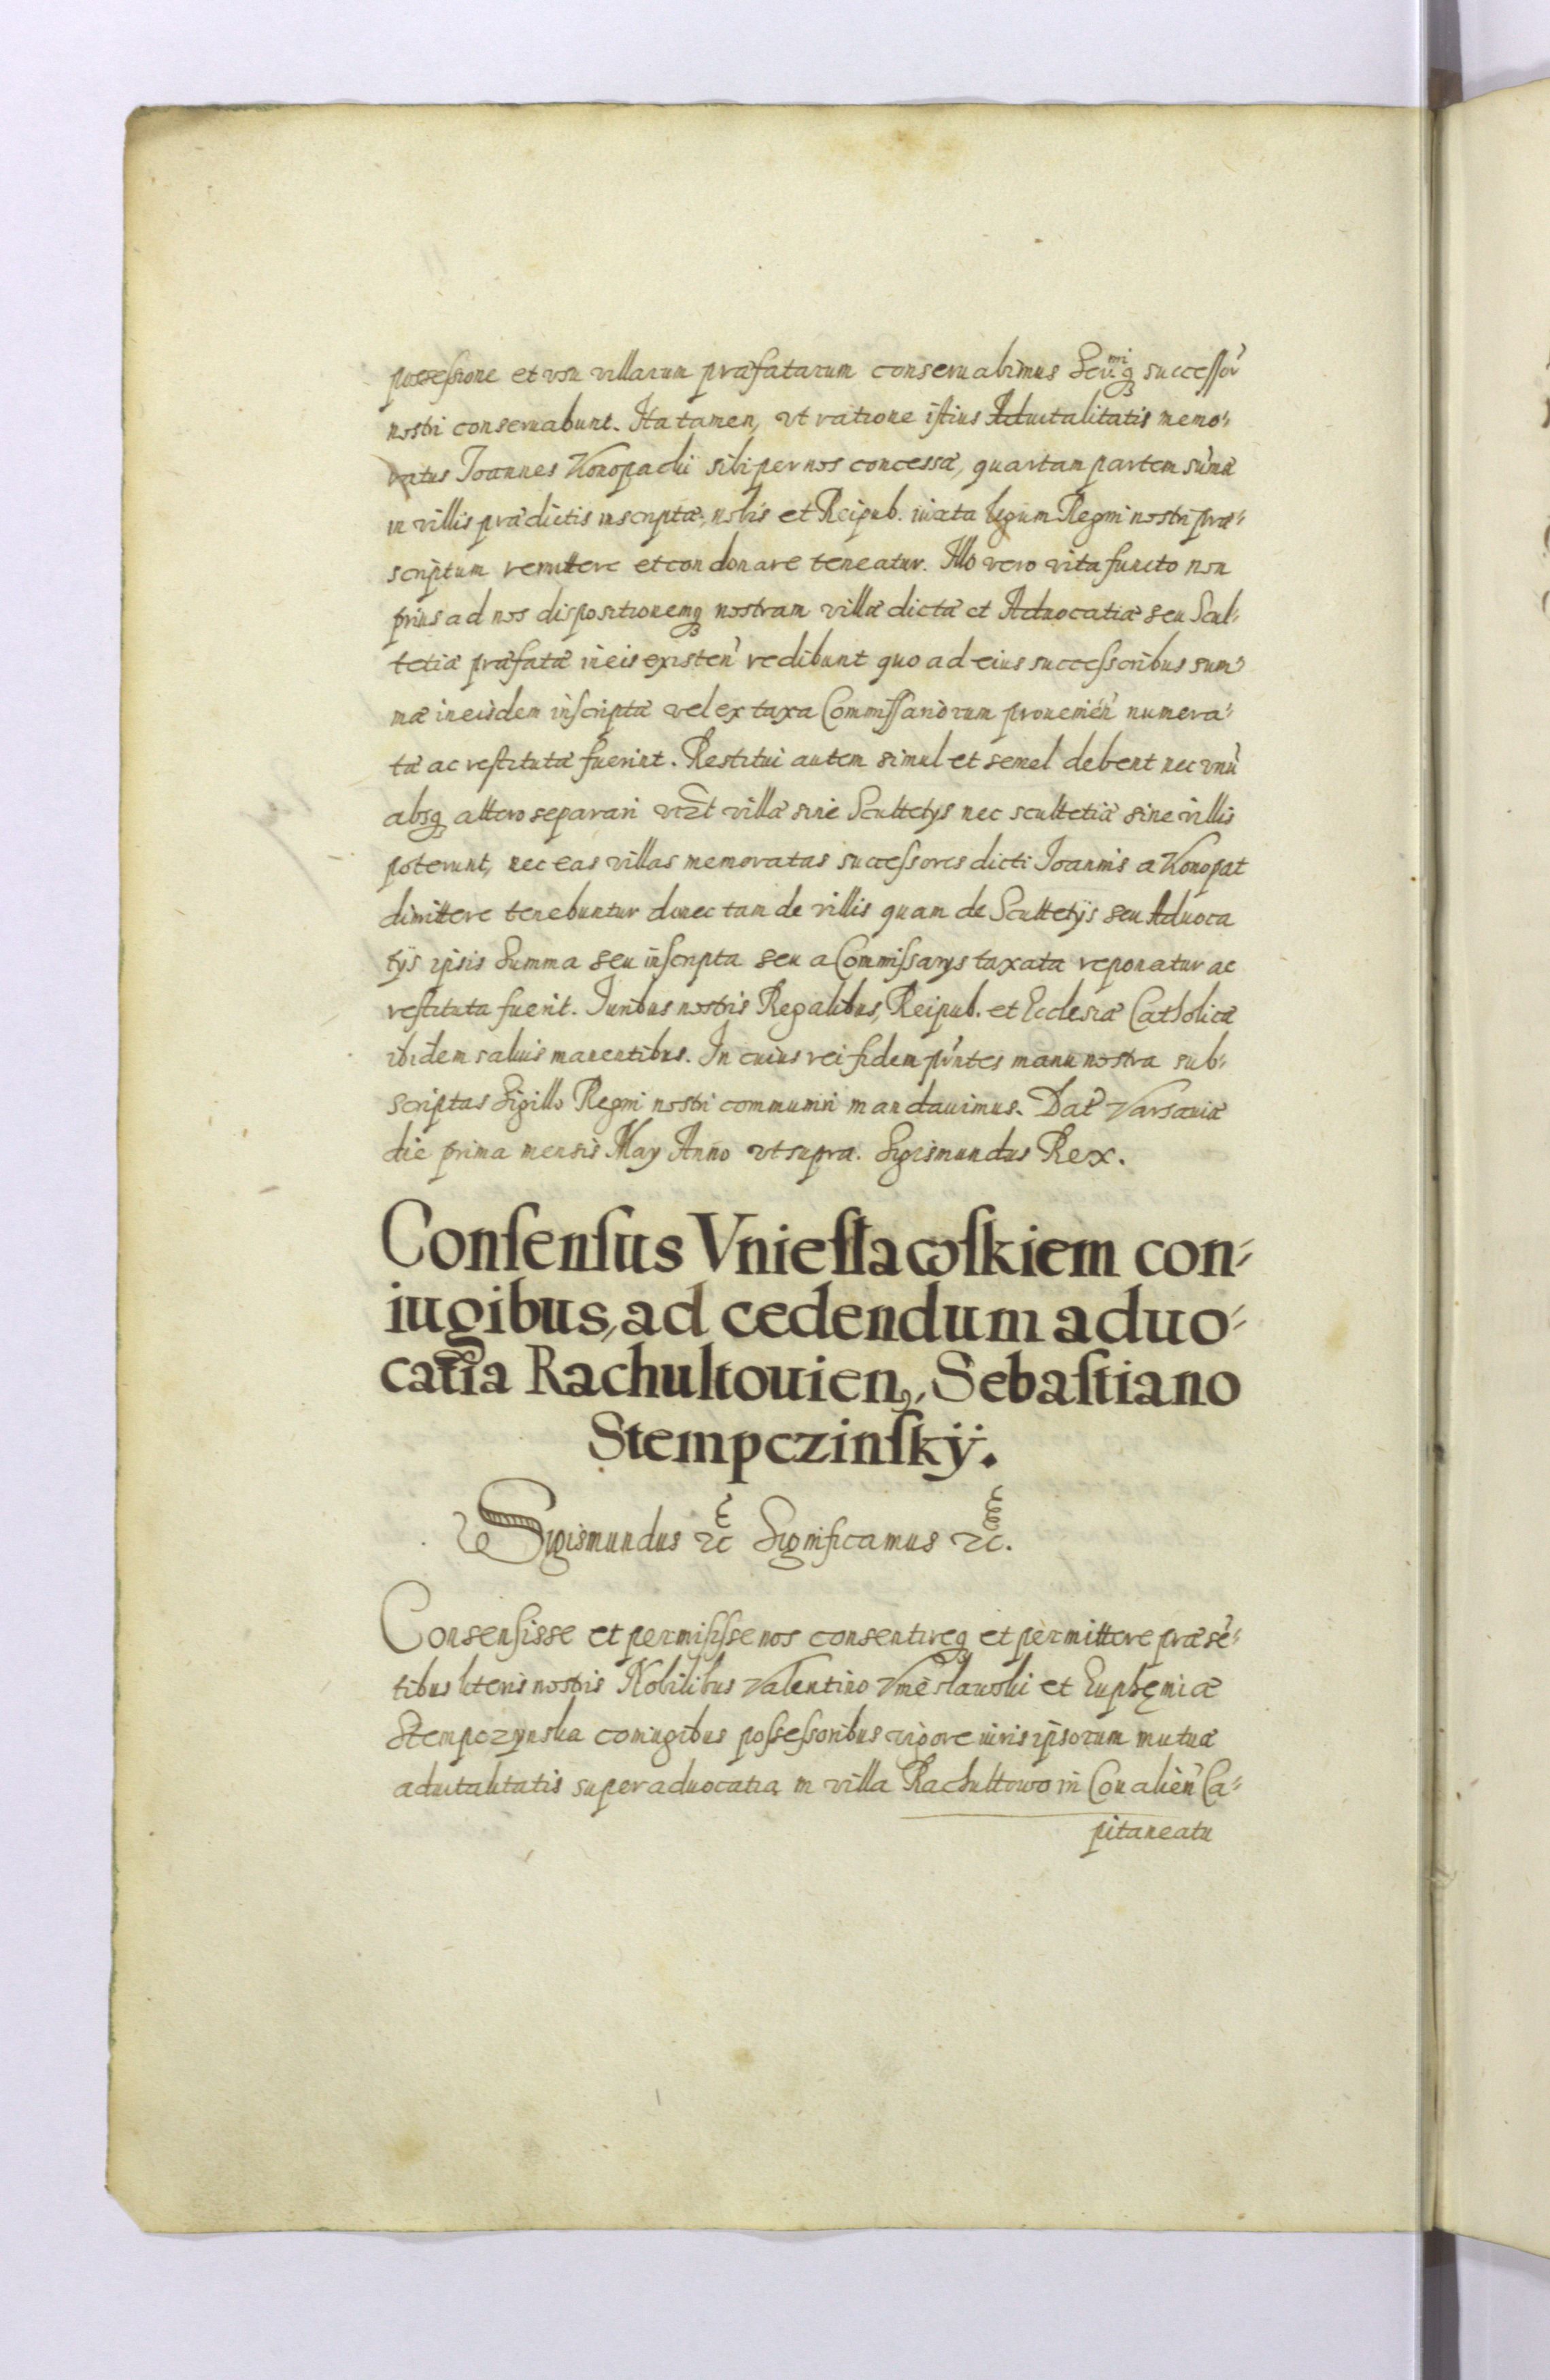 possessione et vsu villarum præfatarum conseruabimus Ser.miq successor̃
nostri conseruabunt. Ita tamen, vt ratione istius Aduitalitatis memo-
ratus Ioannes Konopacki sibi per nos concessæ, quartam partem sum̃æ
in villis prædictis inscriptæ, nobis et Reipub. iuxta legum Regni nostri præ-
scriptum remittere et condonare teneatur. Illo vero vita functo non
prius ad nos dispositionemq nostram villæ dictæ et Aduocatiæ seu Scul-
tetiæ præfatæ in eis existen̄ redibunt quo ad eius successoribus sum-
mæ in eisdem inscriptæ vel ex taxa Commissariorum prouenien̄ numera-
tæ ac restitutæ fuerint. Restitui autem simul et semel debent nec vnū
absq altero separari vizt villæ sine Scultetys nec scultetiæ sine villis
poterunt, nec eas villas memoratas successores dicti Ioannis a Konopat
dimittere tenebuntur donec tam de villis quam de Scultetÿs seu Aduoca
tÿs ipsis Summa seu inscripta seu a Commissarys taxata reponatur ac
restituta fuerit. Iuribus nostris Regalibus, Reipub. et Ecclesiæ Catholicæ
ibidem saluis manentibus. In cuius rei fidem pñtes manu nostra sub-
scriptas Sigillo Regni nostri communiri mandauimus. Dat̃ Varsauiæ
die prima mensis May Anno vt supra. Sigismundus Rex.
Consensus Vniesławskiem con-
iugibus, ad cedendum aduo-
catia Rachultouien, Sebastiano
Stempczinskÿ.
Sigismundus &c Significamus &c.
Consensisse et permisisse nos consentireq et permittere præsē-
tibus literis nostris Nobilibus Valentino Vnieslawski et Euphemiæ
Stempczynska coniugibus possessoribus vigore iuris ipsorum mutuæ
aduitalitatis super aduocatia in villa Rachultowo in Coualien̄ Ca-
pitaneatu